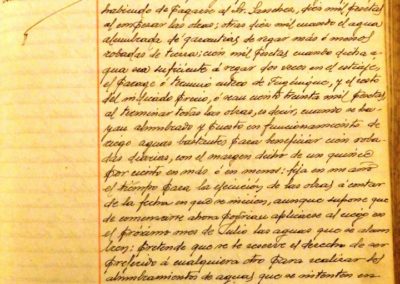 habiendo de pagarse al Sr. Sanchez, diez mil pesetas
al empezar las obras; otras diez mil cuando el agua
alumbrada de garantías de regar más ó menos
robadas de tierra; cien mil pesetas cuando dicha a-
gua sea suficiente á regar dos veces en el estiaje,
el parage ó término de
del indicado precio, ó sean ciento treinta mil pesetas
al terminar todas las obras, es decir, cuando se ha-
yan alumbrado y puesto en funcionamiento de
riego aguas bastantes para beneficiar cien roba-
das diarias, con el margen dicho de un quince
por ciento en más ó en menos; fija en un año
el tiempo para la ejecución de las obras á contar
de la fecha en que se inicien, aunque supone que
de comenzarse ahora podrian aplicarse al riego en
el próximo mes de Julio las aguas que se alum-
bren; pretende que se le reserve el derecho de ser
preferido á cualquiera otro para realizar los
alumbramientos de aguas que se intenten en